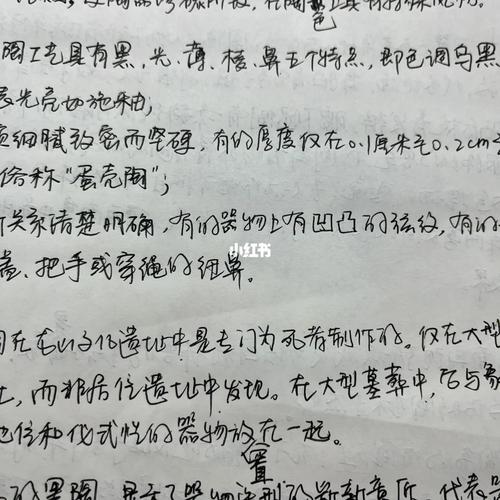 色
陶工艺具有黑、光、薄、棱、鼻五个特点，即色调乌黑
表光亮如施釉；
质细腻致密而坚硬，有的厚度仅在0.1厘米至0.2cm
俗称“蛋壳陶”；
关系清楚明确，有的器物上有凹凸的弦纹，有的
盖、把手或穿绳的纽鼻。
小红书
陶在龙山文化遗址中是专门为死者制作的。仅在大型
，而非居住遗址中发现。在大型墓葬中，它与象
地位和仪式性的器物放在一起。
置
的黑陶，显示了器物造型的崭新意匠，代表